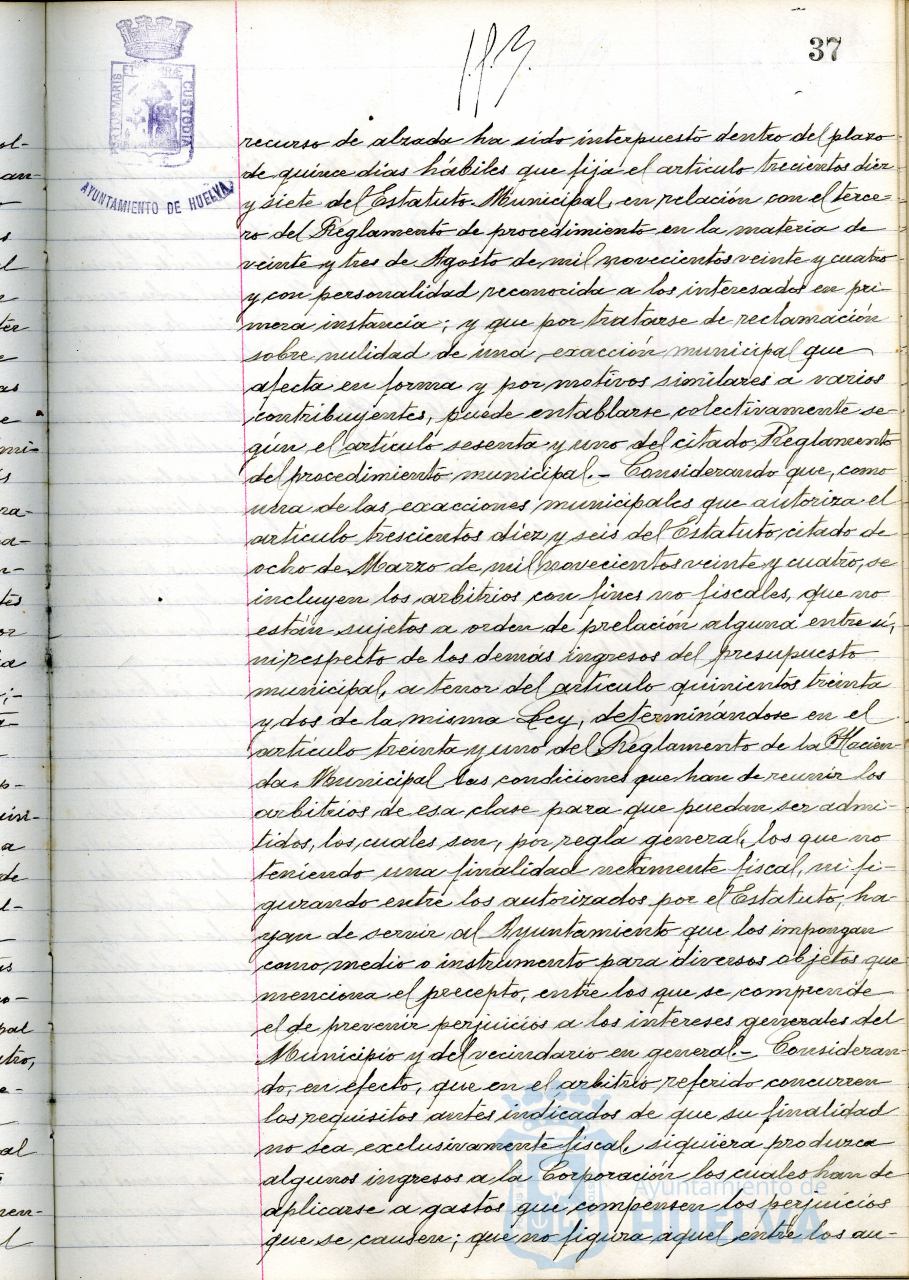 37
PORTUS MARIS ET TERRÆ CUSTODIA
AYUNTAMIENTO DE HUELVA
recurso de alzada ha sido interpuesto dentro del plazo
de quince días hábiles que fija el artículo trecientos diez
y siete del Estatuto Municipal, en relación con el terce-
ro del Reglamento de procedimiento en la materia de
veinte y tres de Agosto de mil novecientos veinte y cuatro
y con personalidad reconocida a los interesados en pri-
mera instancia; y que por tratarse de reclamación
sobre nulidad de una exacción municipal que
afecta en forma y por motivos similares a varios
contribuyentes, puede entablarse colectivamente se-
gún el artículo sesenta y uno del citado Reglamento
del procedimiento municipal.- Considerando que, como
una de las exacciones municipales que autoriza el
artículo trescientos diez y seis del Estatuto citado de
ocho de Marzo de mil novecientos veinte y cuatro, se
incluyen los arbitrios con fines no fiscales, que no
están sujetos a orden de prelación alguna entre sí,
ni respecto de los demás ingresos del presupuesto
municipal, a tenor del artículo quinientos treinta
y dos de la misma Ley, determinándose en el
artículo treinta y uno del Reglamento de la Hacien-
da Municipal las condiciones que han de reunir los
arbitrios de esa clase para que puedan ser admi-
tidos, los cuales son, por regla general, los que no
teniendo una finalidad netamente fiscal, ni fi-
gurando entre los autorizados por el Estatuto, ha-
yan de servir al Ayuntamiento que los impongan
como medio o instrumento para diversos objetos que
menciona el precepto, entre los que se comprende
el de prevenir perjuicios a los intereses generales del
Municipio y del vecindario en general.- Consideran-
do, en efecto, que en el arbitrio referido concurren
los requisitos antes indicados de que su finalidad
no sea exclusivamente fiscal, siquiera produzca
algunos ingresos a la Corporación los cuales han de
aplicarse a gastos que compensen los perjuicios
que se causen; que no figura aquel entre los au-
Ayuntamiento de
HUELVA